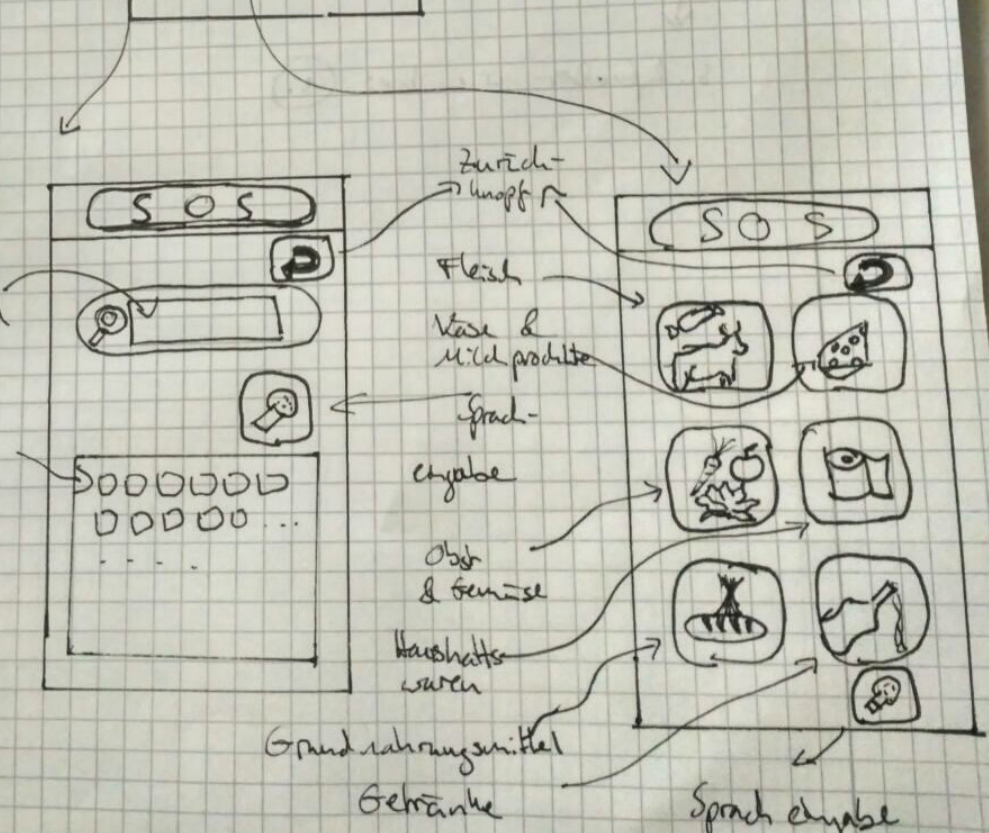 Zurück-
knopf
S O S
S O S
Fleisch
Käse &
Milchprodukte
Sprach-
eingabe
Obst
& Gemüse
Haushalts-
waren
Grundnahrungsmittel
Getränke
Spracheingabe